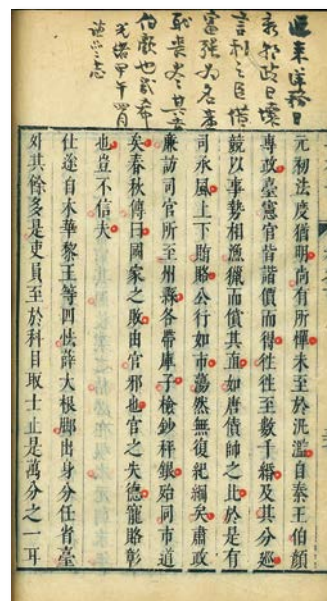 来洋務日
政日壞
言利之臣借
富强为名
其去
伯顏也幾希
光緒甲午四月
元初法度猶明尚有所憚未至於泛濫自秦王伯顏
專政臺憲官皆諧價而得往往至數千緡及其分巡
競以事勢相漁獵而償其直如唐債帥之比於是有
司承風上下賄賂公行如市蕩然無復紀綱矣肅政
廉訪司官所至州縣各帶庫子檢鈔秤銀殆同市道
矣春秋傳曰國家之敗由官邪也官之失德寵賂彰
也豈不信夫
仕途自木華黎王等四怯薛大根腳出身分任省臺
外其餘多是吏員至於科目取士止是萬分之一耳